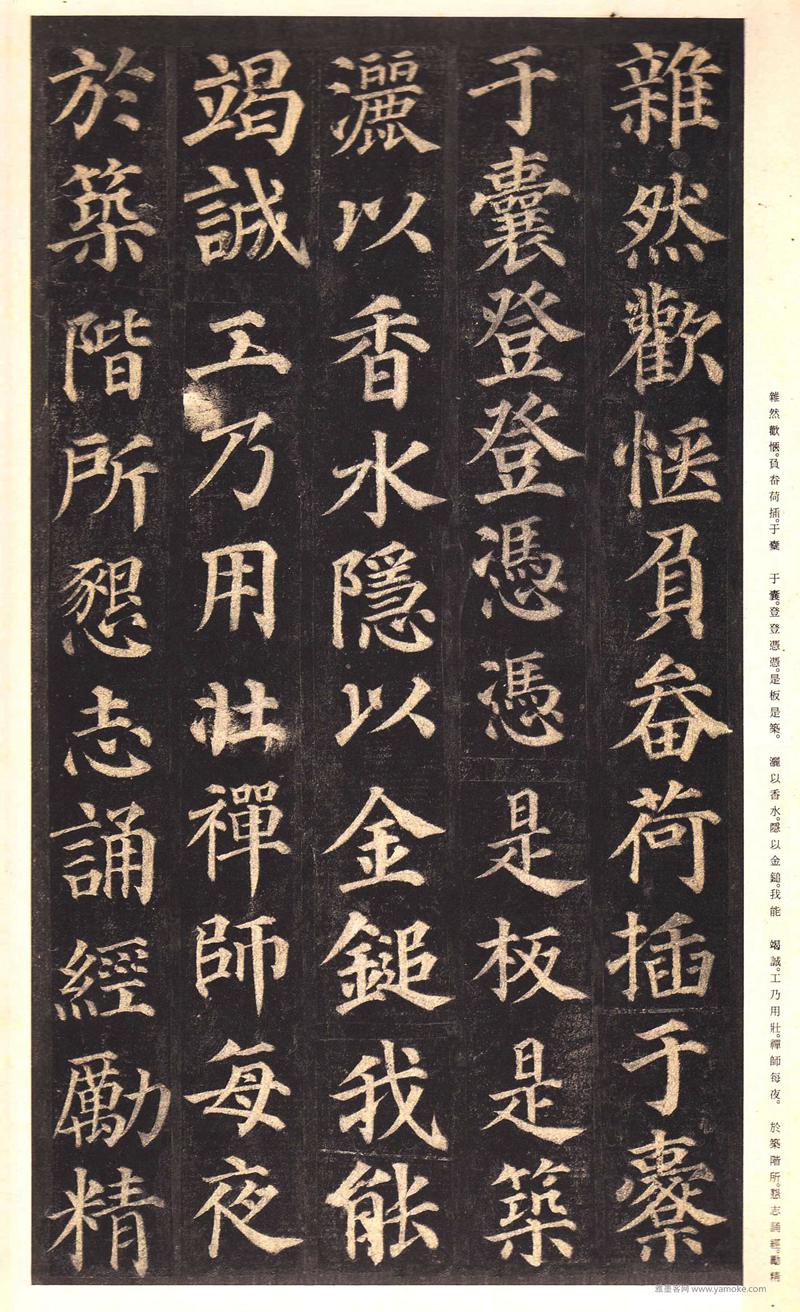 雜然歡愜負畚荷插于橐
于囊登登憑憑是板是築
灑以香水隱以金鎚我能
竭誠工乃用壯禪師每夜
於築階所懇志誦經勵精
雜然歡愜。負畚荷插。于橐　于囊。登登憑憑。是板是築。　灑以香水。隱以金鎚。我能　竭誠。工乃用壯。禪師每夜。　於築階所。懇志誦經。勵精
雅墨客网 www.yamoke.com